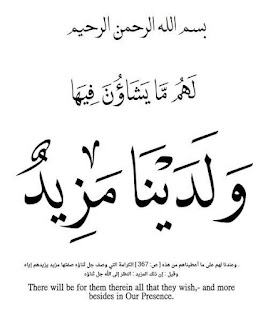 بسم الله الرحمن الرحيم
لَهُم مَّا يَشَاؤُنَ فِيهَا
وَلَدَيْنَا مَزِيدٌ
وعندنا لهم على ما أعطيناهم من هذه [ ص: 367 ] الكرامة التي وصف جل ثناؤه صفتها مزيد يزيدهم إياه .
وقيل : إن ذلك المزيد : النظر إلى الله جل ثناؤه
There will be for them therein all that they wish,- and more
besides in Our Presence.